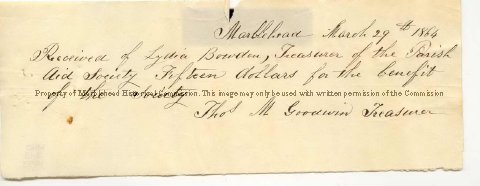 Marblehead March 29th 1864
Received of Lydia Bowden, Treasurer of the Parish
Aid Society Fifteen dollars for the benefit
of the Society
Property of Marblehead Historical Commission. This image may only be used with written permission of the Commission
Thos M Goodwin Treasurer